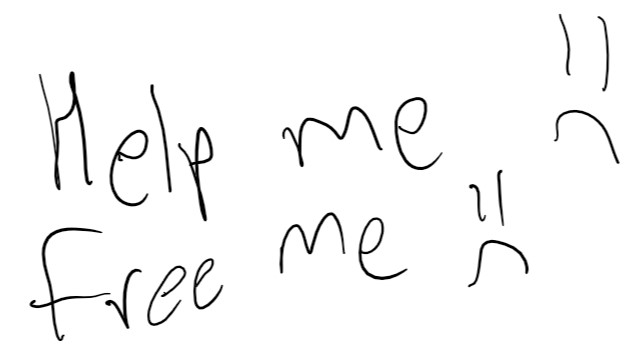 Help me
Free me